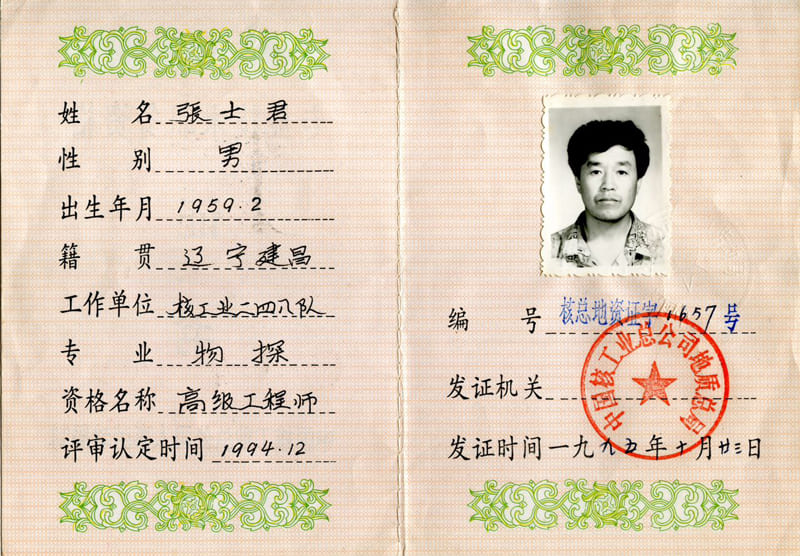 姓 名 張士君
性 别 男
出生年月 1959.2
籍 贯 辽宁建昌
工作单位 核工业二四八队
专 业 物探
资格名称 高级工程师
评审认定时间 1994.12
编 号 核总地资证字1657号
发证机关
中国核工业总公司地质总局
发证时间一九九五年十月廿三日